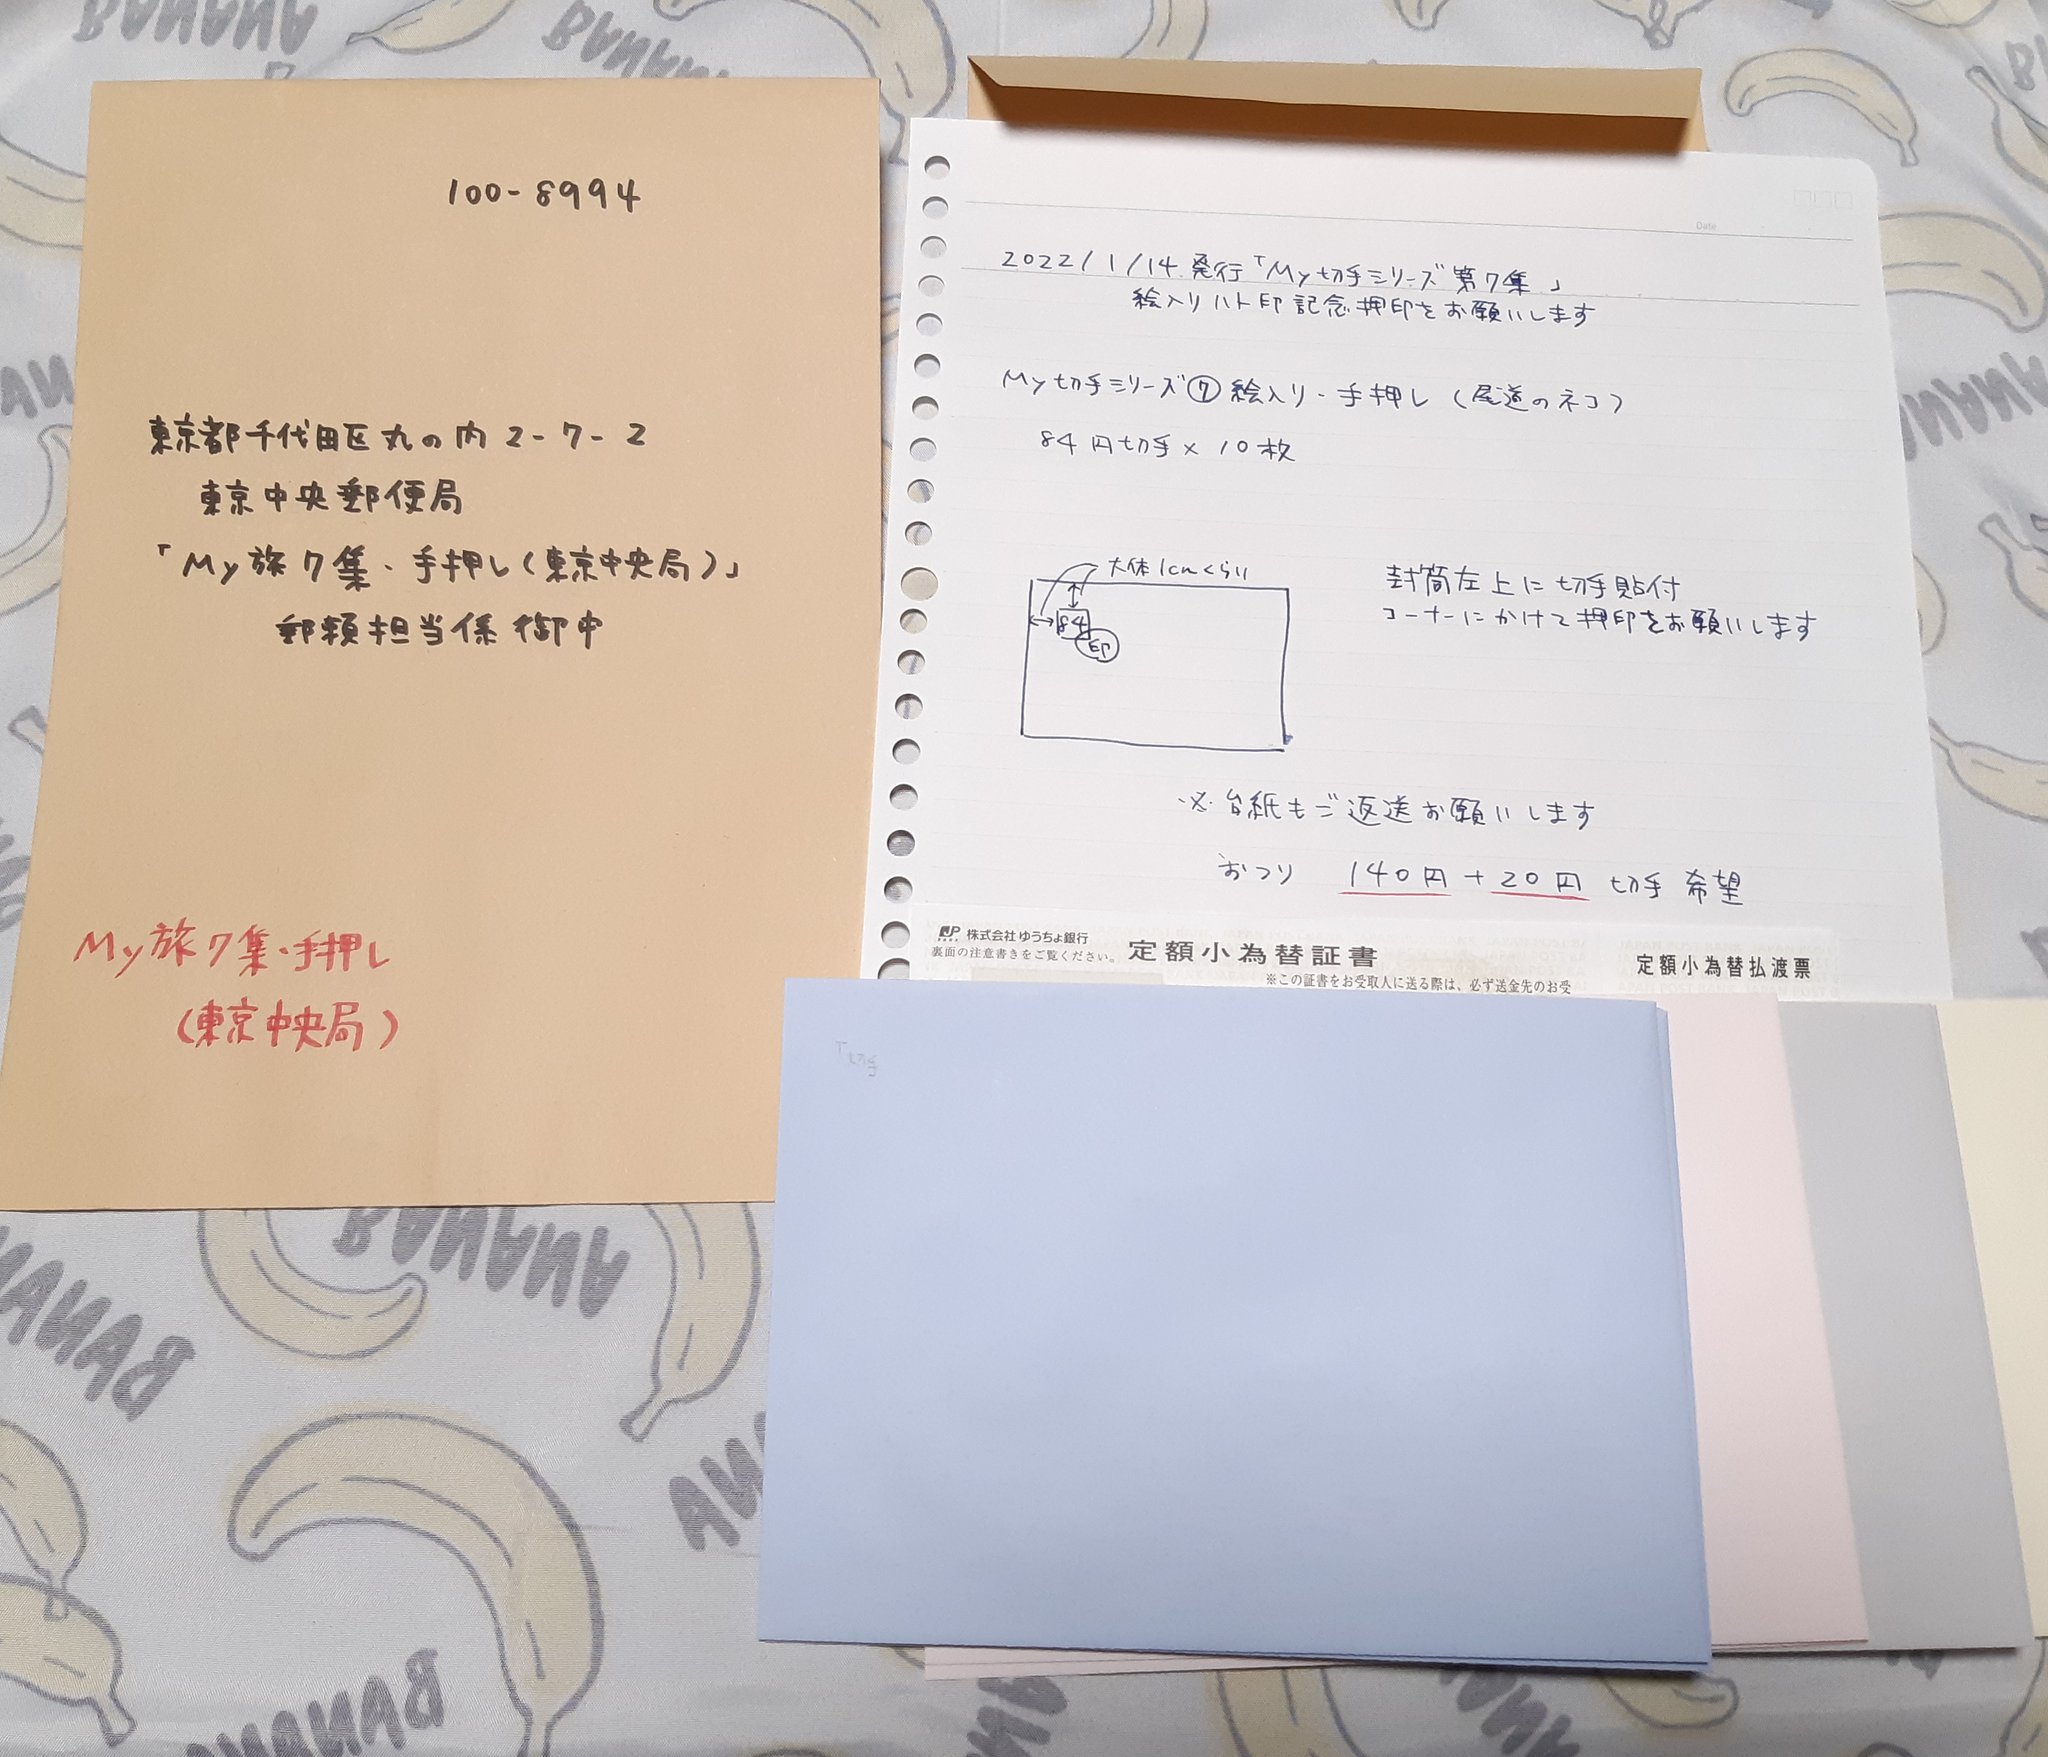 100-8994
東京都千代田区丸の内2-7-2
東京中央郵便局
「My旅7集・手押し(東京中央局)」
郵頼担当係御中
My旅7集・手押し
(東京中央局)
Date
2022/1/14.発行「My切手シリーズ第7集」
絵入りハト印記念押印をお願いします
My切手シリーズ⑦絵入り・手押し(尾道のネコ)
84円切手×10枚
大体1cmくらい
84
印
封筒左上に切手貼付
コーナーにかけて押印をお願いします
※台紙もご返送お願いします
おつり 140円+20円 切手希望
JP 株式会社ゆうちょ銀行
裏面の注意書きをご覧ください。
定額小為替証書
※この証書をお受取人に送る際は、必ず送金先のお受
定額小為替払渡票
切手
BANANA
BANANA
BANANA
BANANA
BANANA